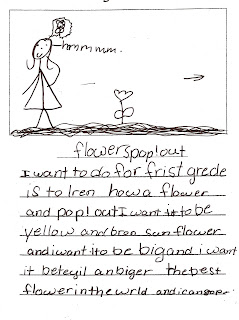 hmmmm.
flowerspop!out
I want to do for frist grede
is to lren how a flower
and pop!out I want it to be
yellow and bron sun flower
and i want it to be big and i want
it an biger the best
flower in the wrld and ican